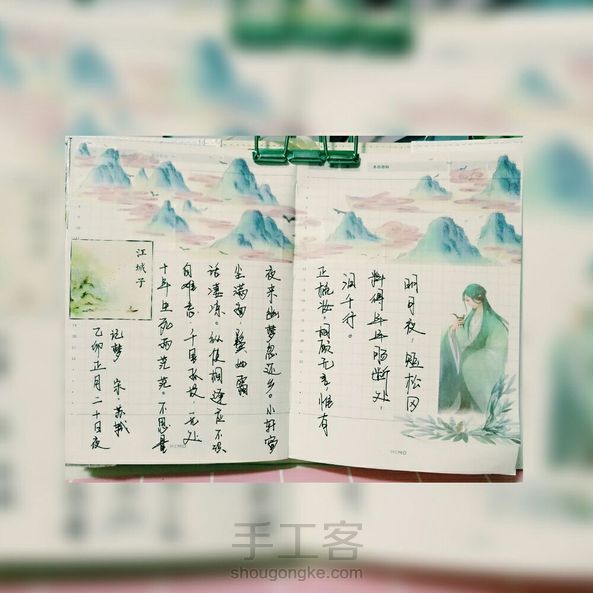 江城子
乙卯正月二十日夜
记梦 宋 苏轼
十年生死两茫茫。不思量
自难忘。千里孤坟 无处
话凄凉。纵使相逢应不识
尘满面,鬓如霜
夜来幽梦忽还乡。小轩窗
正梳妆。相顾无言,惟有
泪千行。
料得年年肠断处,
明月夜,短松冈
MEMO
MEMO
手工客
shougongke.com